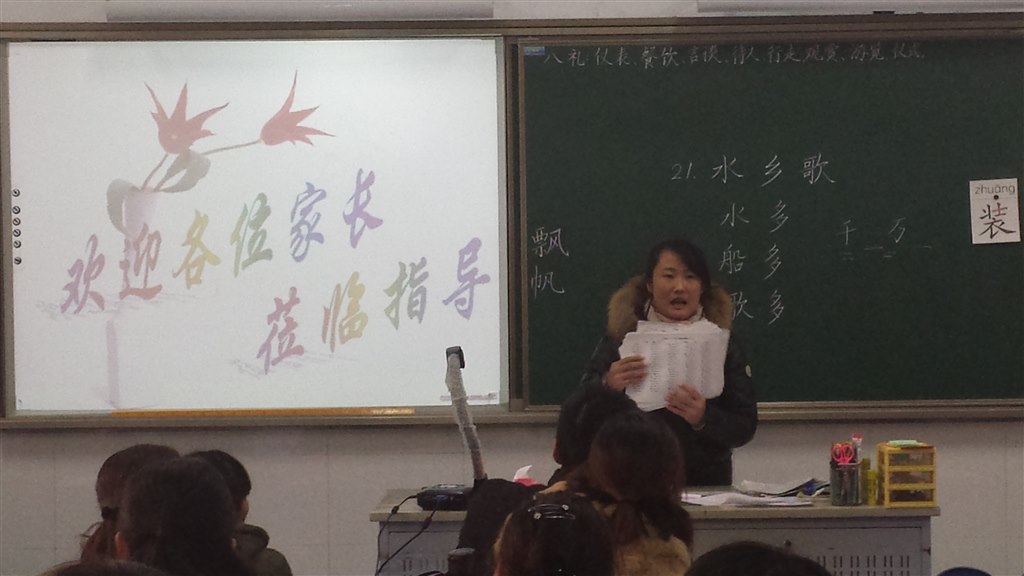 欢迎各位家长
莅临指导
八礼:仪表、餐饮、言谈、待人、行走、观赏、游览、仪式
21. 水乡歌
水多
船多
歌多
千 万
飘
帆
zhuāng
装